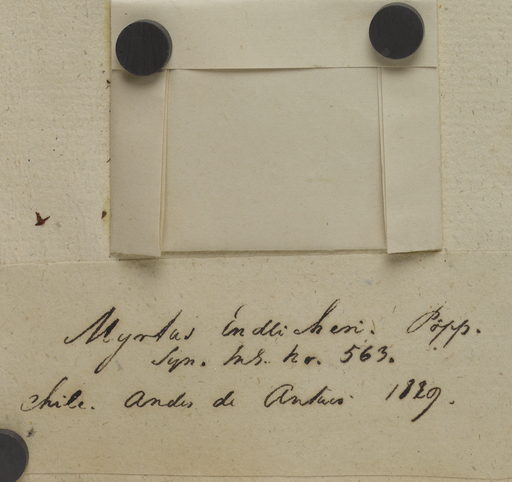 Myrtus Endlicheri. Pöpp.
Syn. MS. No. 563.
Chile. Andes de Antuco. 1829.